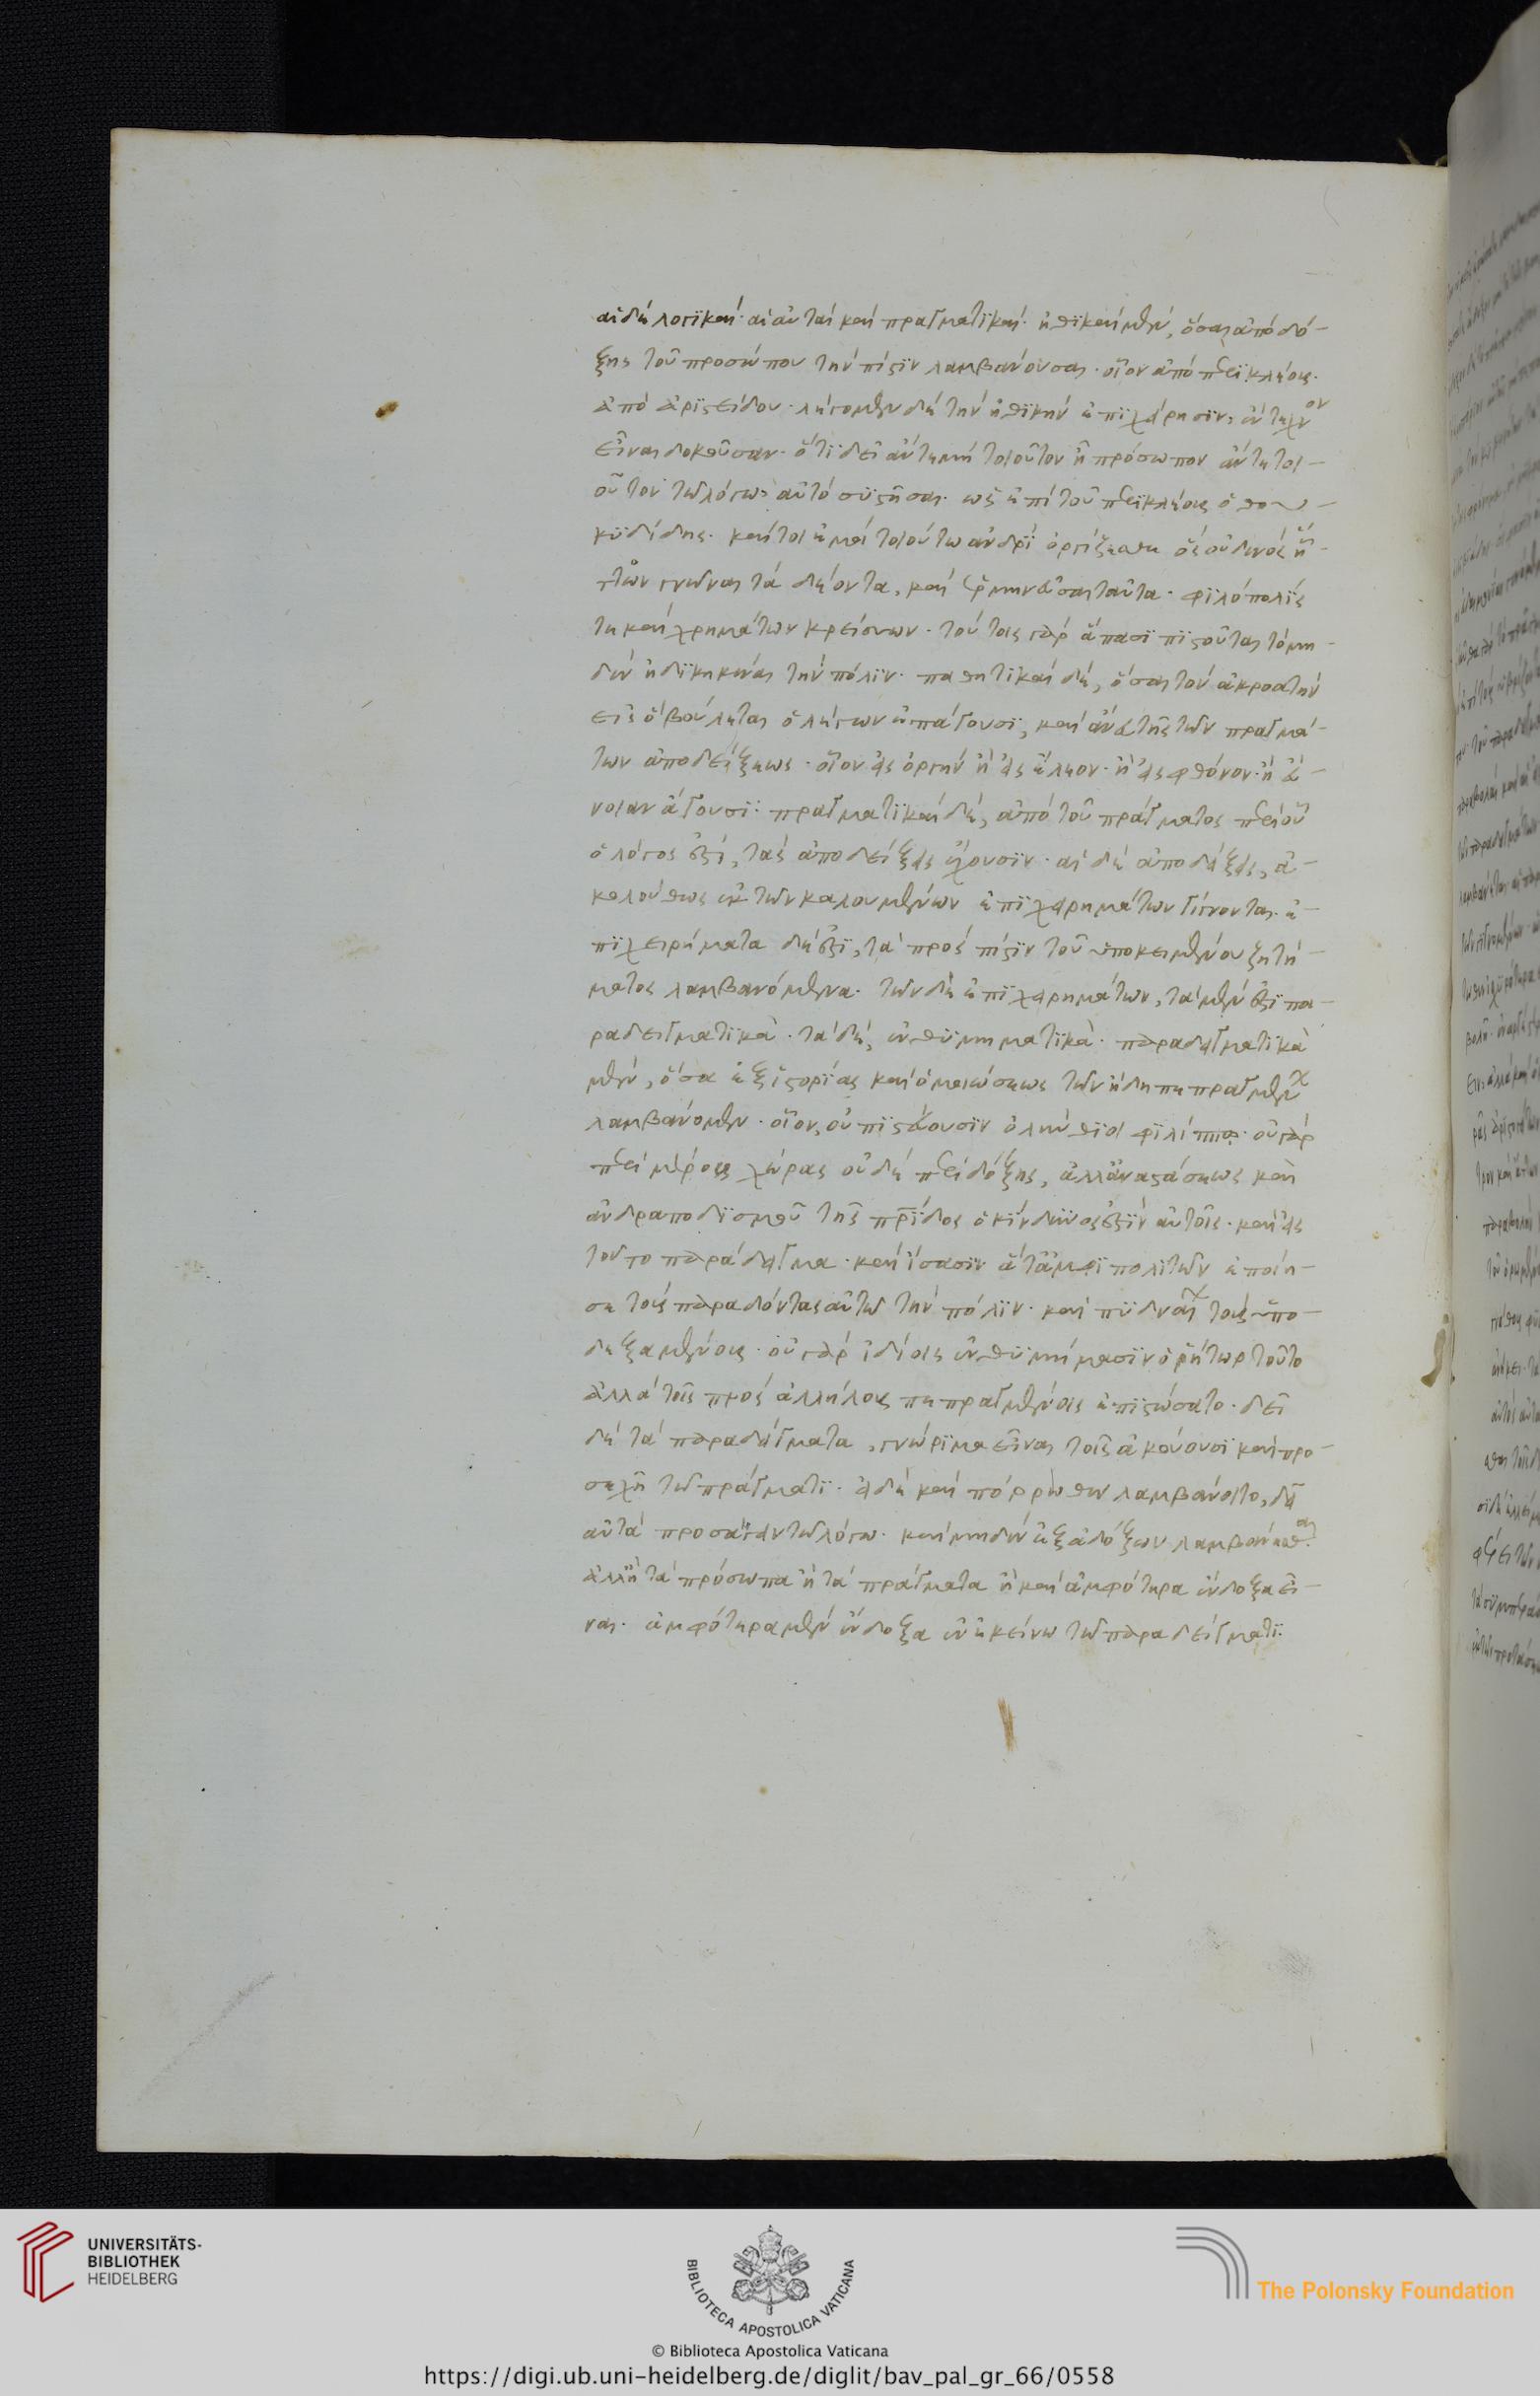 αἱ δὲ λογϊκαί· αἱ αὐταὶ καὶ πραγματϊκαί· ἠθϊκαὶ μὲν, ὅσαι ἀπὸ δό-
ξης τοῦ προσώπου τὴν πίστϊν λαμβάνουσαι· οἷον ἀπὸ περϊκλέους·
ἀπὸ ἀρϊστείδου· λέγομεν δὲ τὴν ἠθϊκὴν ἐπϊχείρησϊν, ἔντεχνον
εἶναι δοκοῦσαν· ὅτϊ δεῖ ἄν τε μὴ τοιοῦτον ἦ πρόσωπον ἄν τε τοι-
οῦτον τῶ λόγω, αὐτὸ συϊστῆσαι· ὡς ἐπὶ τοῦ περϊκλέους ὁ θου-
κϋδίδης· καίτοι ἐμοὶ τοιούτω ἀνδρὶ ὀργίζεσθε ὃς οὐδενὸς ἥ-
των γνῶναι τὰ δέοντα, καὶ ἑρμηνεῦσαι ταῦτα· φϊλόπολϊς
τε καὶ χρημάτων κρείσσων· τούτοις γὰρ ἅπασϊ πϊστοῦται τὸ μη-
δὲν ἠδϊκηκέναι τὴν πόλϊν· παθητϊκαὶ δὲ, ὅσαι τὸν ἀκροατὴν
εἰς ὃ βούλεται ὁ λέγων ἐπάγουσϊ, καὶ ἄνευ τῆς τῶν πραγμά-
των ἀποδείξεως· οἷον εἰς ὀργὴν ἢ εἰς ἔλεον· ἢ εἰς φθόνον· ἢ εὔ-
νοιαν ἄγουσϊ· πραγματϊκαὶ δὲ, ἀπὸ τοῦ πράγματος περὶ οὗ
ὁ λόγος ἐστὶ, τὰς ἀποδείξεις ἔχουσϊν· αἱ δὲ ἀποδείξεις, ἀ-
κολούθως ἐκ τῶν καλουμένων ἐπϊχειρημάτων γίγνονται· ἐ-
πϊχειρήματα δέ ἐστϊ, τὰ πρὸς πίστϊν τοῦ ὑποκειμένου ζητή-
ματος λαμβανόμενα· τῶν δὲ ἐπϊχειρημάτων, τὰ μέν ἐστϊ πα-
ραδειγματϊκὰ· τὰ δὲ, ἐνθϋμηματϊκὰ· παραδειγματϊκὰ
μὲν, ὅσα ἐξ ἱστορίας καὶ ὁμοιώσεως τῶν ἤδη πεπραγμένων
λαμβάνομεν· οἷον, οὐ πϊστεύουσϊν ὀλύνθϊοι φϊλίππω· οὐ γὰρ
περὶ μέρους χώρας οὐδὲ περὶ δόξης, ἀλλ' ἀναστάσεως καὶ
ἀνδραποδϊσμοῦ τῆς πρίδος ὁ κίνδυνος ἐστϊν αὐτοῖς· καὶ εἰς
τοῦτο παράδειγμα· καὶ ἴσασϊν ἅ τ' ἀμφϊπολϊτῶν ἐποίη-
σε τοὺς παραδόντας αὐτῶ τὴν πόλϊν· καὶ πϋδναίων τοὺς ὑπο-
δεξαμένους· οὐ γὰρ ἰδίοις ἐνθϋμήμασϊν ὁ ῥήτωρ τοῦτο
ἀλλὰ τοῖς πρὸς ἀλλήλους πεπραγμένοις ἐπϊστώσατο· δεῖ
δὲ τὰ παραδείγματα, γνώρϊμα εἶναι τοῖς ἀκούουσϊ καὶ προ-
σεχῆ τῶ πράγματϊ· εἰ δὲ καὶ πόρρωθεν λαμβάνοιτο, δεῖ
αὐτὰ προσάγειν τῶ λόγω· καὶ μηδὲν ἐξ ἀδόξων λαμβάνεσθαι
ἀλλ' ἢ τὰ πρόσωπα ἢ τὰ πράγματα ἢ καὶ ἀμφότερα ἔνδοξα εἶ-
ναι· ἀμφότερα μὲν ἔνδοξα ἐν ἐκείνω τῶ παραδείγματϊ·
UNIVERSITÄTS-
BIBLIOTHEK
HEIDELBERG
BIBLIOTECA APOSTOLICA VATICANA
The Polonsky Foundation
© Biblioteca Apostolica Vaticana
https://digi.ub.uni-heidelberg.de/diglit/bav_pal_gr_66/0558